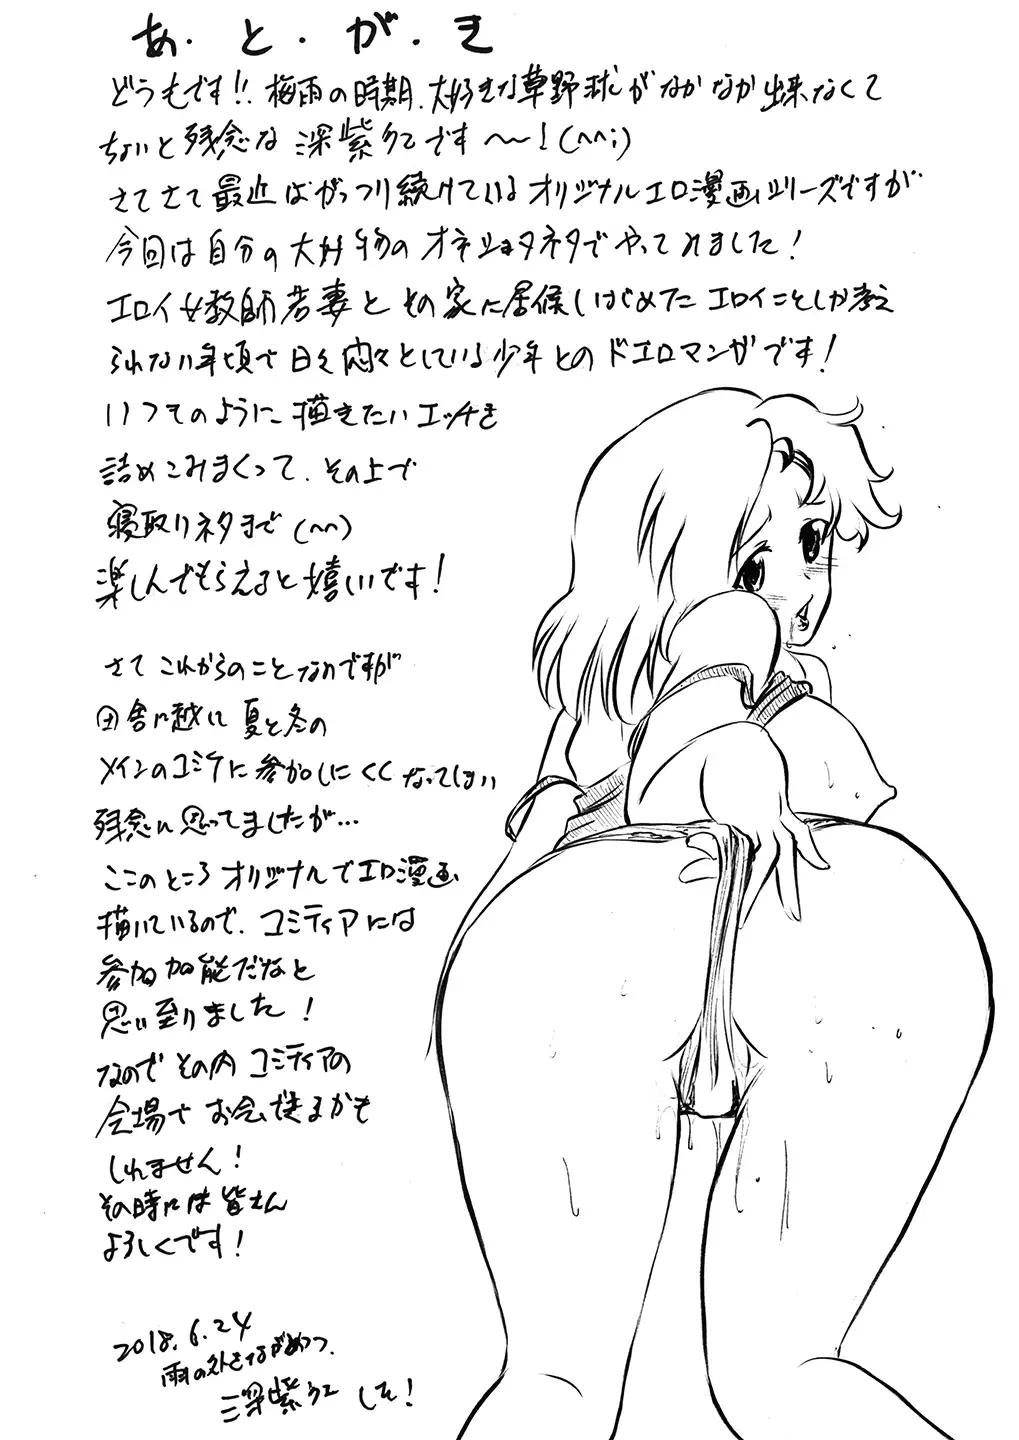 あ・と・が・き
どうもです!!梅雨の時期、大好きな草野球がなかなか出来なくて
ちょいと残念な深紫です〜〜!(^^;)
さてさて最近はがっつり続けているオリジナルエロ漫画シリーズですが
今回は自分の大好物のオネショタネタでやってみました!
エロイ女教師若妻とその家に居候しはじめたエロイことしか考え
られない年頃で日々悶々としている少年とのドエロマンガです!
いつものように描きたいエッチを
詰めこみまくって、その上で
寝取りネタまで(^^)
楽しんでもらえると嬉しいです!
さてこれからのことなのですが
田舎に越して夏と冬の
メインのコミケに参加しにくくなってしまい
残念に思ってましたが…
ここのところオリジナルでエロ漫画
描いているので、コミティアには
参加可能だなと
思い至りました!
なのでその内コミティアの
会場でお会いできるかも
しれません!
その時には皆さん
よろしくです!
2018.6.24
雨の外をながめつつ、
深紫